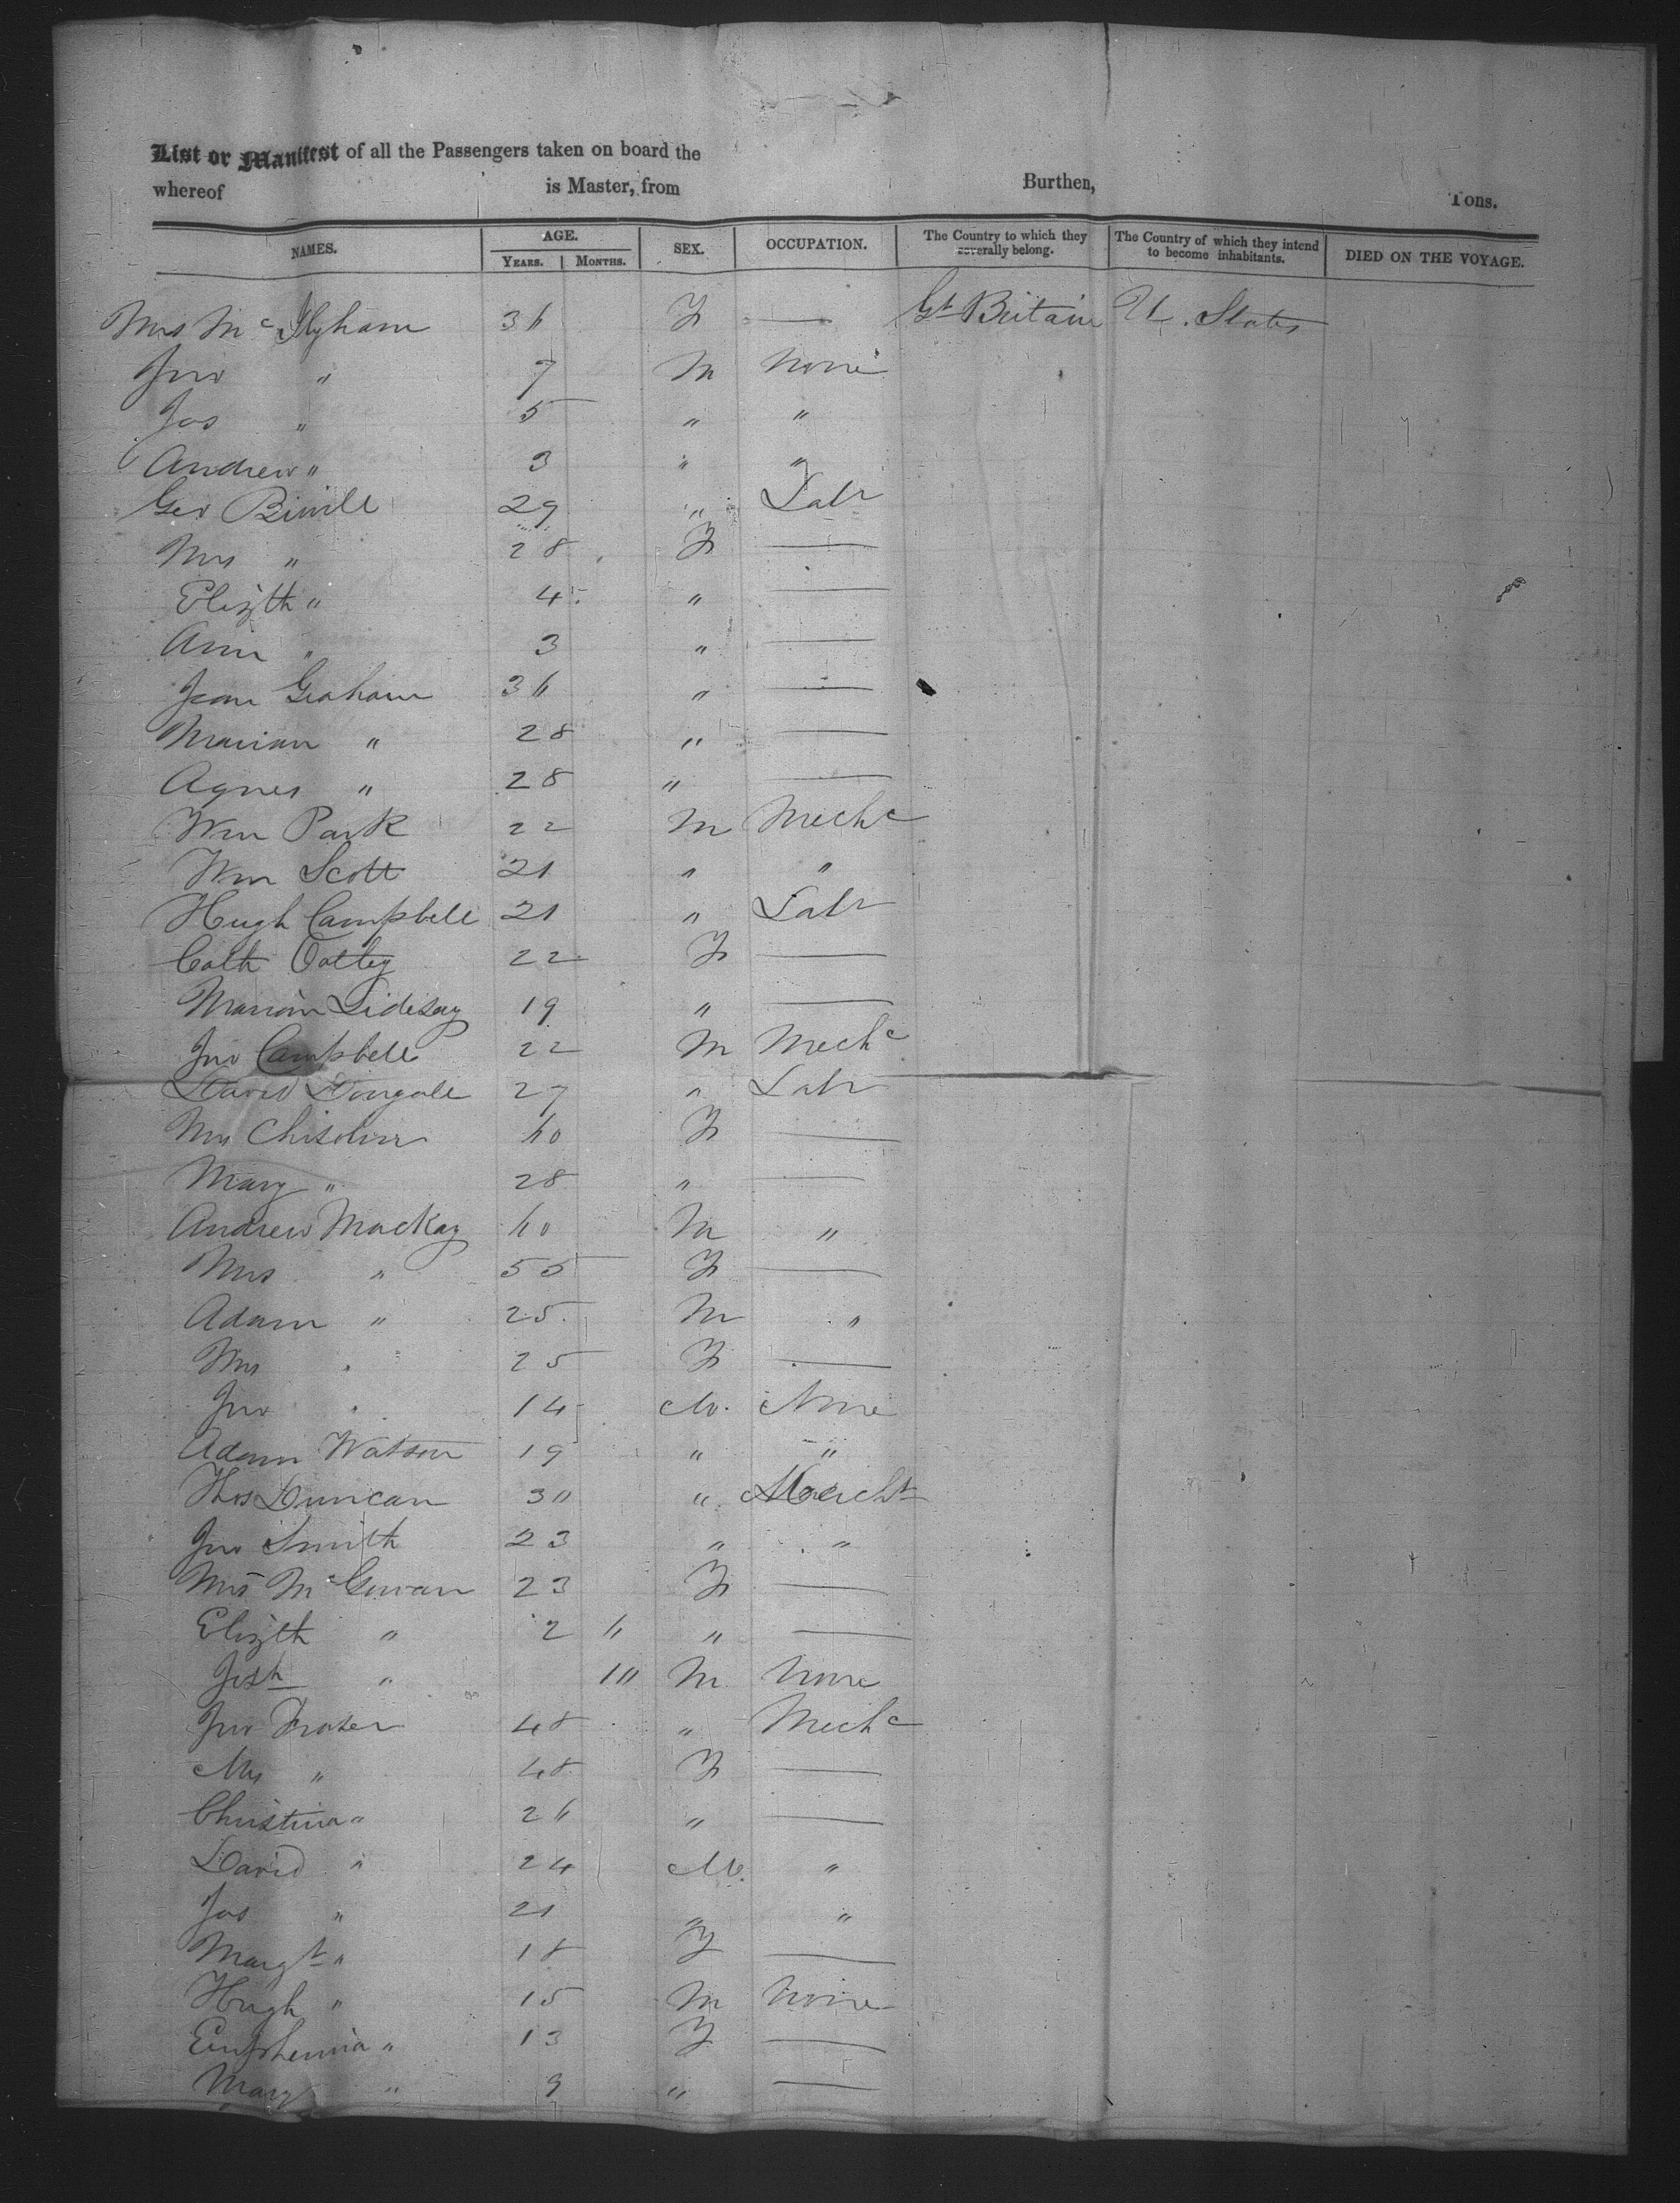 List or Manifest of all the Passengers taken on board the
whereof is Master, from Burthen, Tons.
NAMES. AGE. YEARS. MONTHS. SEX. OCCUPATION. The Country to which they severally belong. The Country of which they intend to become inhabitants. DIED ON THE VOYAGE.
Mrs Mc 36 F — Gt Britain U. States
Jno " 7 M None
Jas " 5 " "
Andrew " 3 " "
Geo 29 " Labr
Mrs " 28 F —
Elizth " 4 " —
Ann " 3 " —
Jean Graham 36 " —
Marian " 28 " —
Agnes " 28 " —
Wm Park 22 M Mechc
Wm Scott 21 " "
Hugh Campbell 21 " Labr
Cath 22 F —
Marion Lidesay 19 " —
Jno Campbell 22 M Mechc
David Dingale 27 " Labr
Mrs Chisholm 60 F —
Mary " 28 " —
Andrew Mackay 60 M "
Mrs " 55 F —
Adam " 25 M "
Mrs " 25 F —
Jno " 14 M. None
Adam Watson 19 " "
Thos Duncan 30 " Mercht
Jno Smith 23 " "
Mrs McGowan 23 F —
Elizth " 2 6 " —
Jos\h " 10 M None
Jno Fraser 48 " Mechc
Mrs " 48 F —
Christina " 26 " —
David " 24 M. "
Jas " 21 " "
Margt " 18 F —
Hugh " 15 M None
Euphemia " 13 F —
Mary " 9 " —